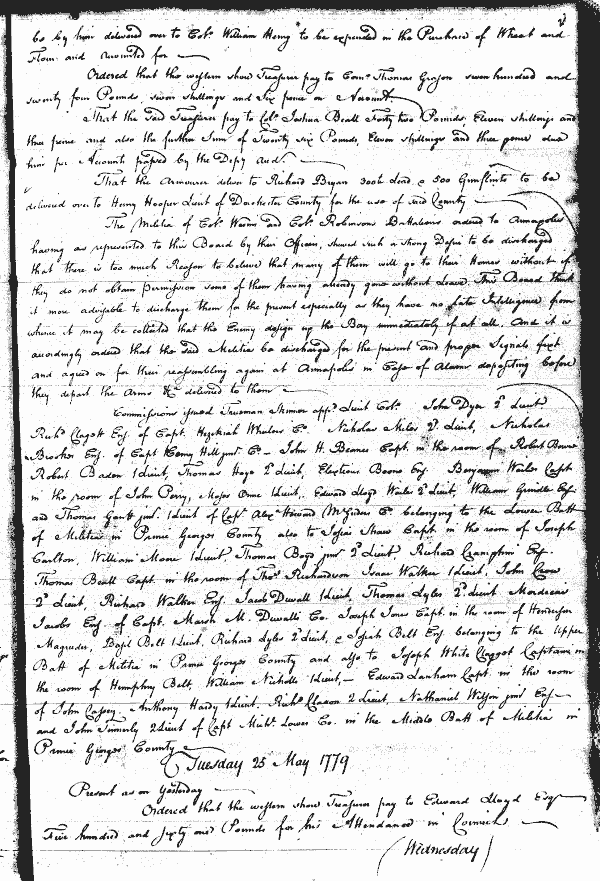 be by him delivered over to Colo. William Hemsley to be expended in the Purchase of Wheat and
Flour and accounted for
Ordered that the western shore Treasurer pay to Com. Thomas Grason seven hundred and
twenty four Pounds, seven shillings and six pence on Account.
That the said Treasurer pay to Colo. Joshua Beall Forty two Pounds, Eleven shillings and
three pence and also the further Sum of Twenty six Pounds, Eleven shillings and three pence due
him per Account passed by the Depy Audr.
That the Armourer deliver to Richard Bryan 300lb Lead & 500 Gunflints to be
delivered over to Henry Hooper Lieut of Dorchester County for the use of said County
The Militia of Colo. Weems and Colo. Robinsons Battalions ordered to Annapolis
having as represented to this Board by their Officers, shewed such a strong Desire to be discharged
that there is too much Reason to believe that many of them will go to their Homes without if
they do not obtain permission some of them having already gone without Leave. This Board think
it more adviseable to discharge them for the present especially as they have no late Intelligence from
whence it may be collected that the Enemy design up the Bay immediately if at all. And it is
accordingly ordered that the said Militia be discharged for the present and proper Signals fixt
and agreed on for their reassembling again at Annapolis in Case of Alarm depositing before
they depart the Arms &c delivered to them
Commissions issued Trueman Skinner appd. Lieut Colo. John Dyer 2d Lieut
Richd. Clagett Ens. of Capt. Hezekiah Wheelers Co. Nicholas Miles 2d. Lieut, Nicholas
Brooke Ens. of Capt Henry Hill junr Co. John H. Beanes Capt. in the room of Robert Bowie
Robert Baden 1 Lieut, Thomas Hoye 2d Lieut, Electious Boone Ens. Benjamin Wailes Capt
in the room of John Perry, Moses Orme 1 Lieut, Edward Lloyd Wailes 2d Lieut, William Grindle Ens.
and Thomas Gantt junr. 1 Lieut of Capt Alexr Howard Magruders Co belonging to the Lower Batt
of Militia in Prince Georges County also to Josias Shaw Capt in the room of Joseph
Carlton, William Moore 1 Lieut Thomas Boyd junr 2d Lieut, Richard Cramphin Ens.
Thomas Beall Capt. in the room of Thos. Richardson Isaac Walker 1 Lieut, John Crow
2d Lieut, Richard Walker Ens. Jacob Duvall 1 Lieut Thomas Lyles 2d Lieut Mordecai
Jacobs Ens. of Capt. Marsh M. Duvalls Co. Joseph Jones Capt. in the room of Henderson
Magruder, Bazil Belt 1 Lieut, Richard Lyles 2d Lieut, & Josiah Belt Ens. belonging to the Upper
Batt of Militia in Prince Georges County and also to Joseph White Claggett Captain in
the room of Humphry Belt, William Nicholls 1 Lieut, Edward Lanham Capt. in the room
of John Casey, Anthony Hardy 1 Lieut. Richd. Clason 2 Lieut, Nathaniel Wilson junr Ens.
and John 2 Lieut of Capt Michl. Lowes Co. in the Middle Batt of Militia in
Prince Georges County
Tuesday 25 May 1779
Present as on yesterday
Ordered that the western shore Treasurer pay to Edward Lloyd Esqr
Five hundred and sixty one Pounds for his Attendance in Congress
(Wednesday)